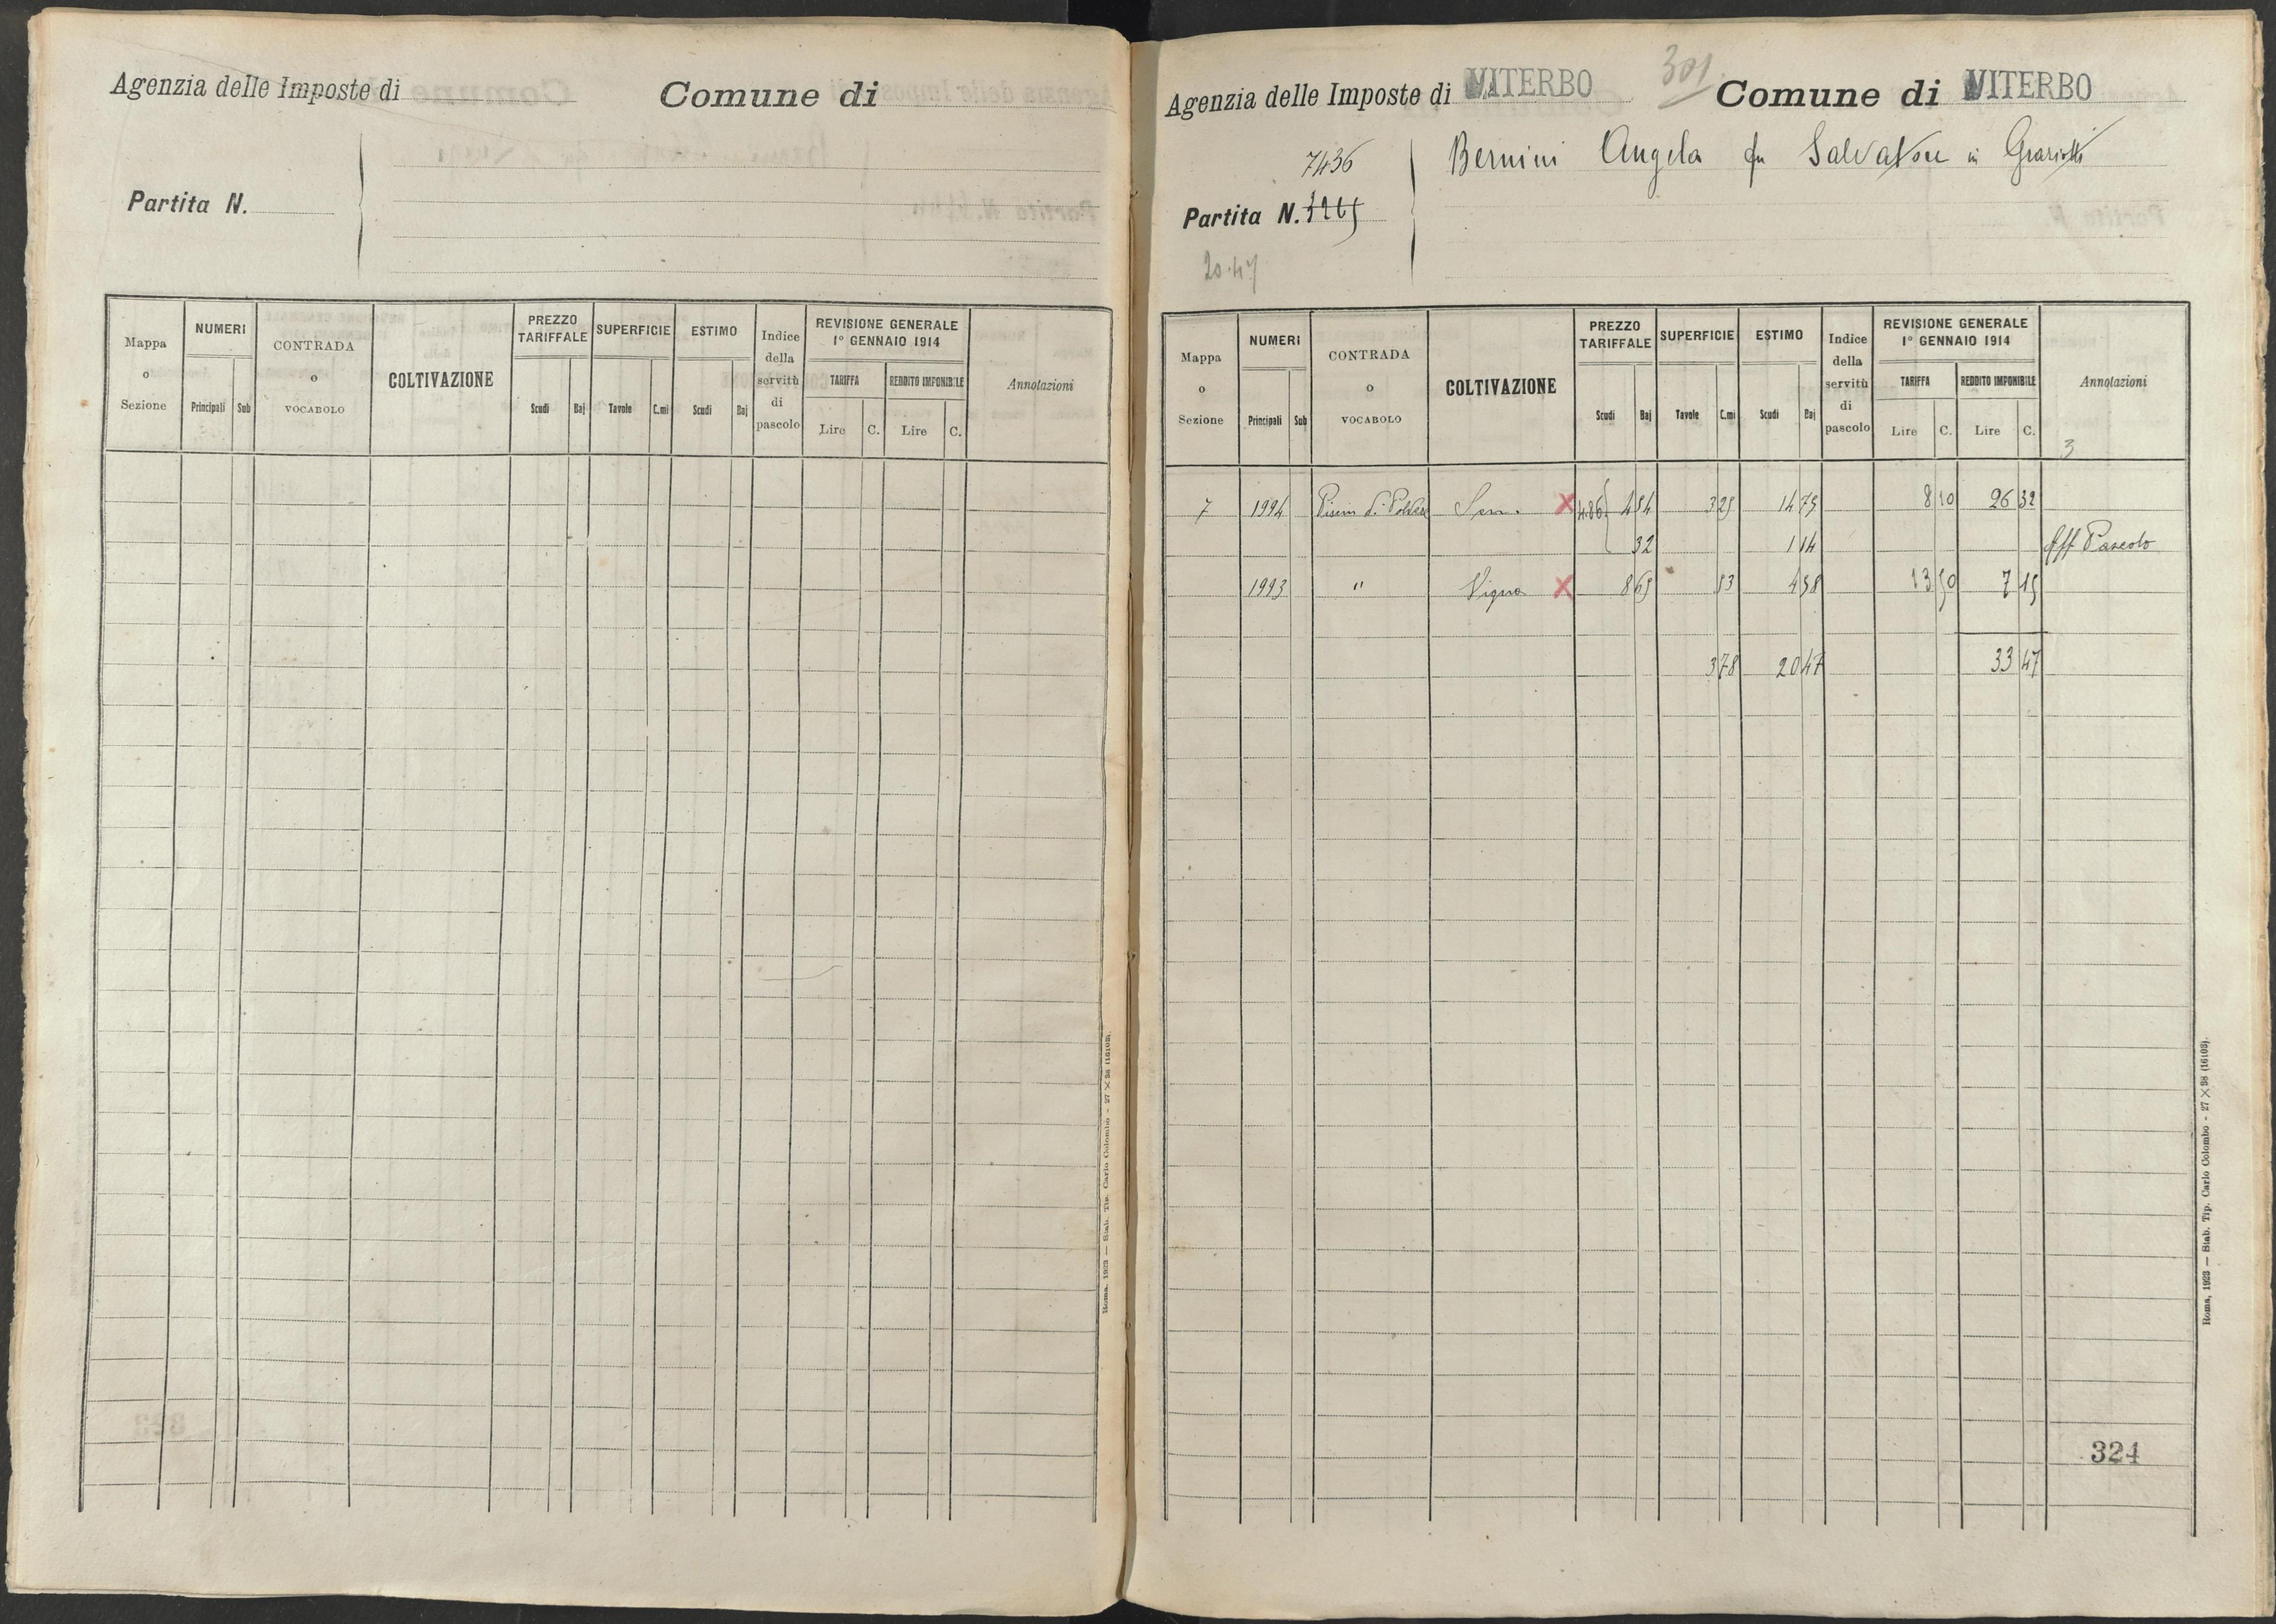 Agenzia delle Imposte di
Comune di
Partita N.
Mappa o Sezione
NUMERI
Principali Sub
CONTRADA o VOCABOLO
COLTIVAZIONE
PREZZO TARIFFALE
Scudi Baj
SUPERFICIE
Tavole C.mi
ESTIMO
Scudi Baj
Indice della servitù di pascolo
REVISIONE GENERALE
1° GENNAIO 1914
TARIFFA REDDITO IMPONIBILE
Lire C. Lire C.
Annotazioni
Roma, 1923 — Stab. Tip. Carlo Colombo - 27 × 38 (16103).
Agenzia delle Imposte di VITERBO
301
Comune di VITERBO
7436
Bernini Angela fu Salvatore in
Partita N.
20.47
Mappa o Sezione
NUMERI
Principali Sub
CONTRADA o VOCABOLO
COLTIVAZIONE
PREZZO TARIFFALE
Scudi Baj
SUPERFICIE
Tavole C.mi
ESTIMO
Scudi Baj
Indice della servitù di pascolo
REVISIONE GENERALE
1° GENNAIO 1914
TARIFFA REDDITO IMPONIBILE
Lire C. Lire C.
Annotazioni
3
7 1994 Sem. X 4.86 4 54 3 25 14 75 8 10 26 32
32 1 14 Aff Pascolo
1993 " Vigna X 8 65 53 4 58 13 50 7 15
3 78 20 47 33 47
324
Roma, 1923 — Stab. Tip. Carlo Colombo - 27 × 38 (16103).